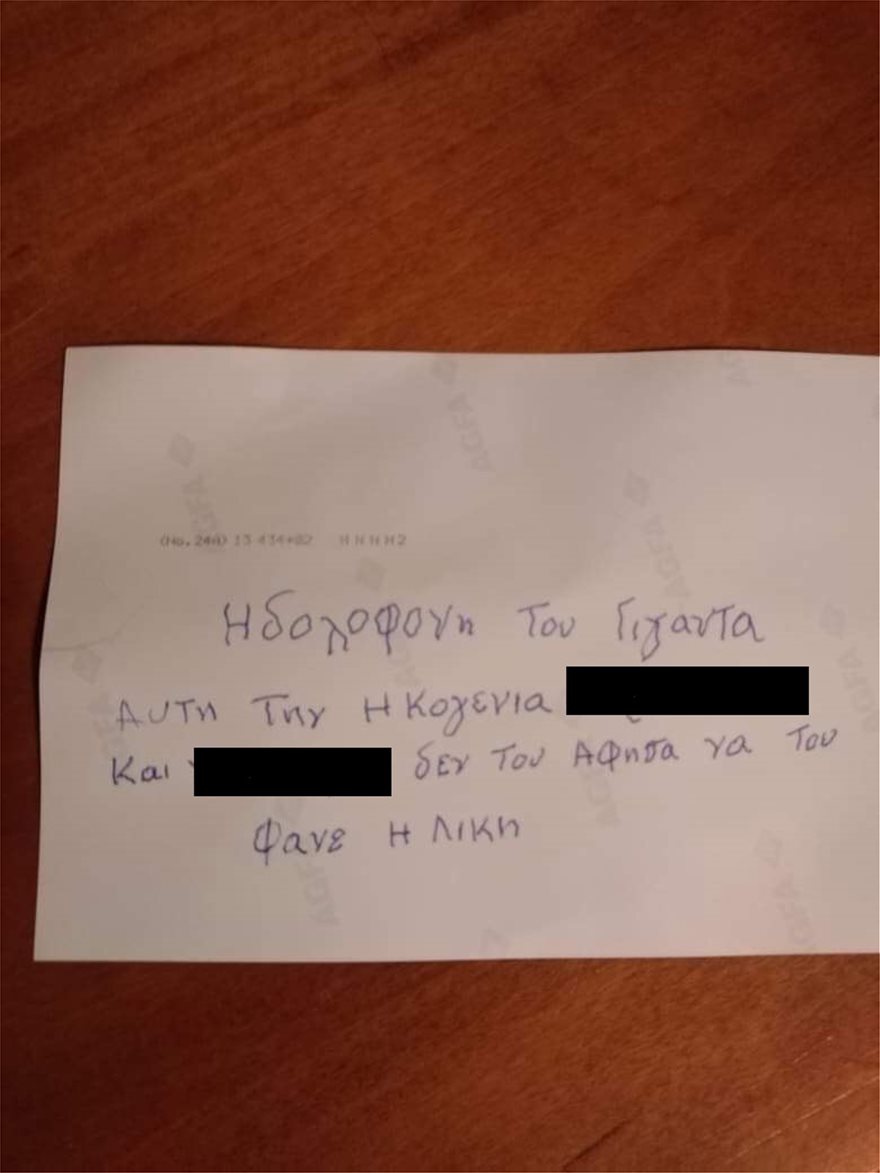 (No. 24A) 13 434+02 N N N N 2
Η δολοφονη του Γιγαντα
Αυτη την Η κογενια
Και δεν του Αφησα να του
φανε Η λικη
AGFA